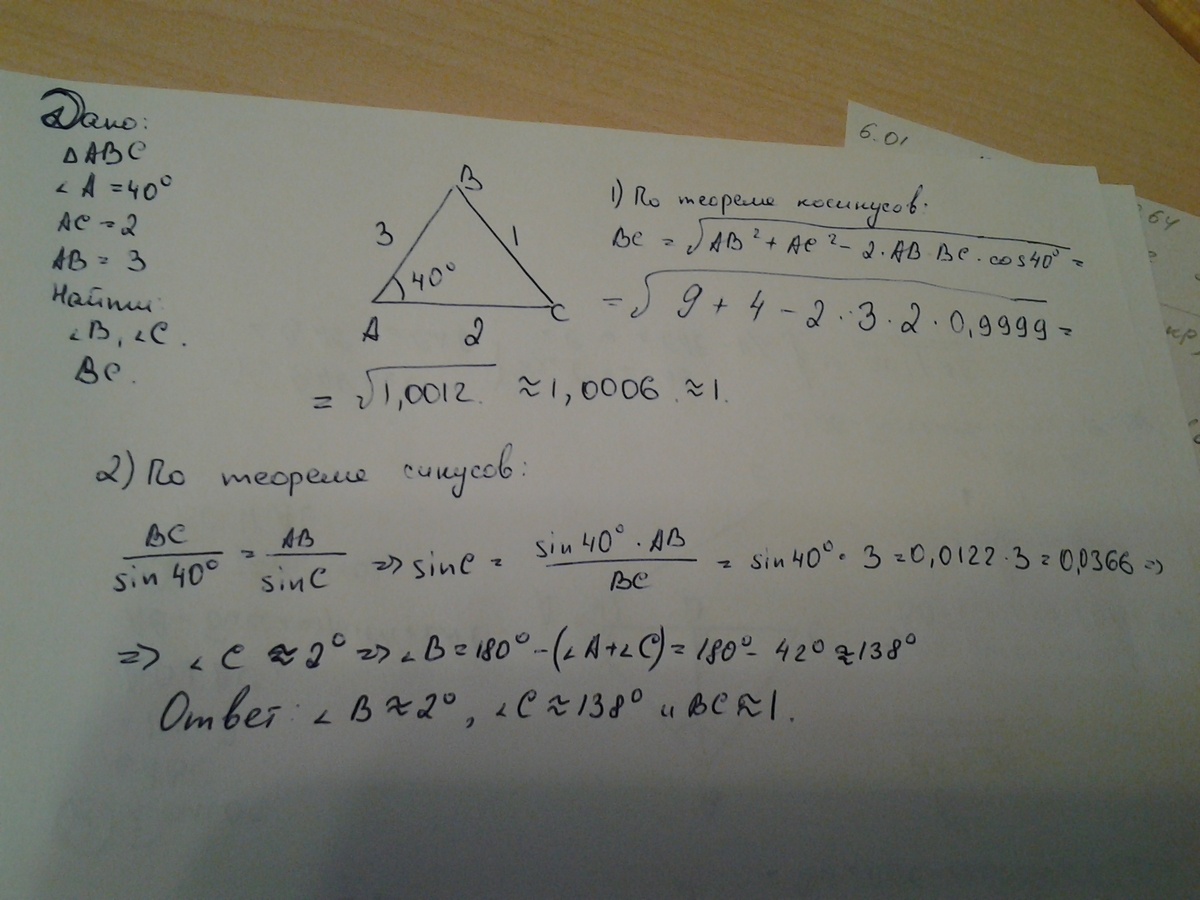 Дано:
△ABC
∠A = 40°
AC = 2
AB = 3
Найти:
∠B, ∠C.
BC.
B
3
1
40°
A
2
C
1) По теореме косинусов:
BC = √AB² + AC² - 2·AB·BC·cos40° =
= √9 + 4 - 2·3·2·0,9999 =
= √1,0012 ≈ 1,0006 ≈ 1.
2) По теореме синусов:
BC/sin 40° = AB/sinC => sinC = sin40°·AB/BC = sin40°·3 = 0,0122·3 = 0,0366 =>
=> ∠C ≈ 2° => ∠B = 180° - (∠A+∠C) = 180° - 42° ≈ 138°
Ответ: ∠B ≈ 2°, ∠C ≈ 138° и BC ≈ 1.
6.01
64